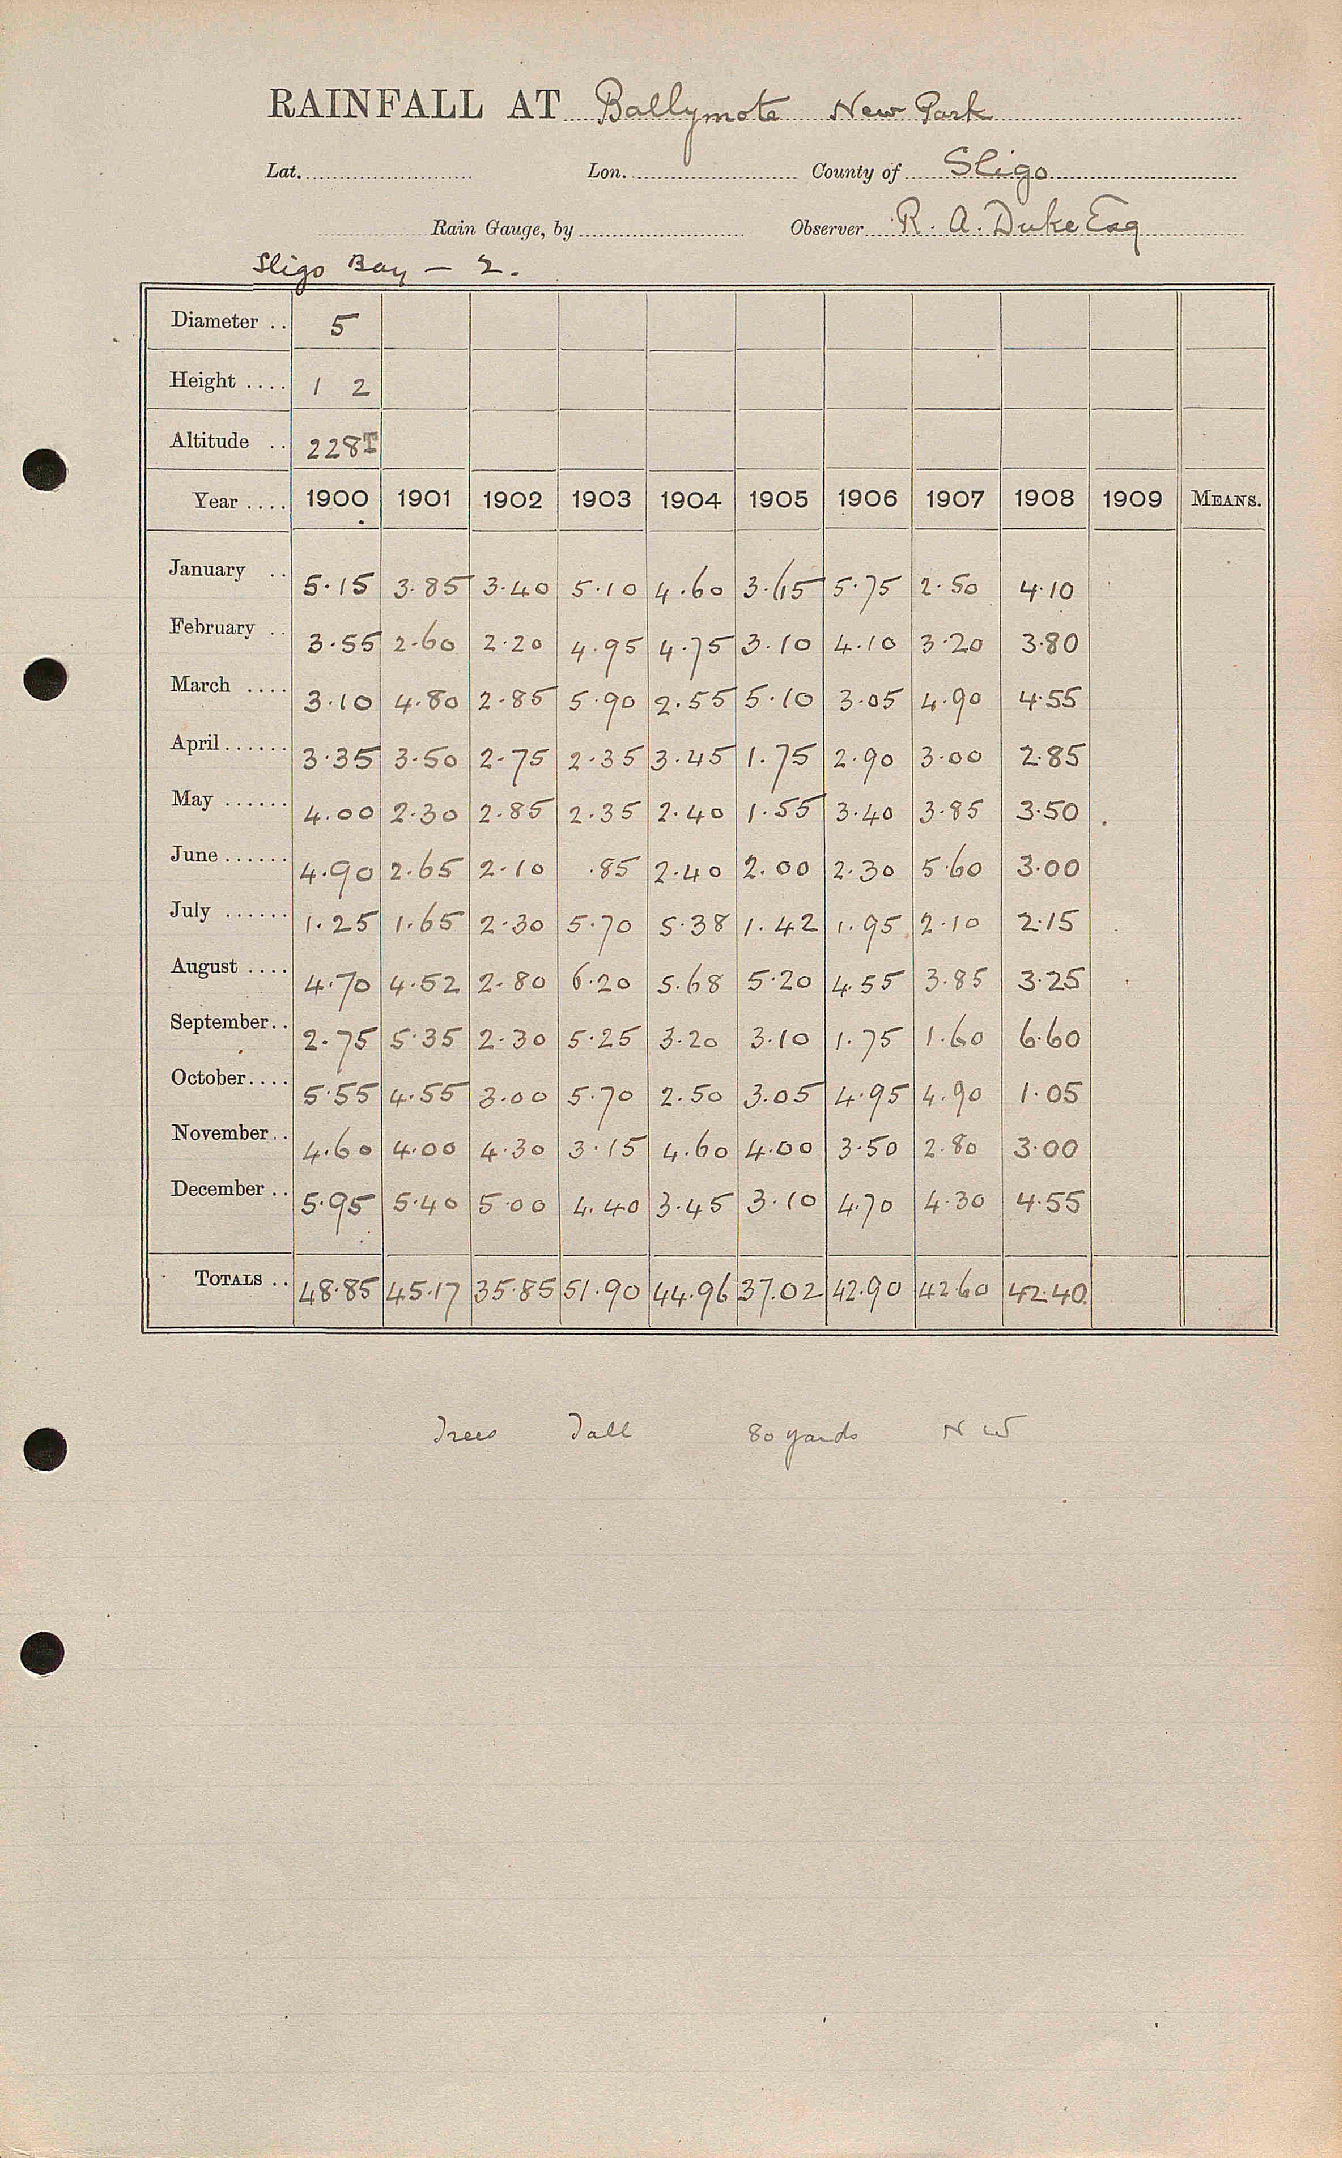 RAINFALL AT Ballymote New Park
Lat. Lon. County of Sligo
Rain Gauge, by Observer R. A. Duke Esq
Sligo Bay — 2.
Diameter .. 5
Height .... 1 2
Altitude .. 228T
Year .... 1900 1901 1902 1903 1904 1905 1906 1907 1908 1909 MEANS.
January .. 5.15 3.85 3.40 5.10 4.60 3.65 5.75 2.50 4.10
February .. 3.55 2.60 2.20 4.95 4.75 3.10 4.10 3.20 3.80
March .... 3.10 4.80 2.85 5.90 2.55 5.10 3.05 4.90 4.55
April...... 3.35 3.50 2.75 2.35 3.45 1.75 2.90 3.00 2.85
May ...... 4.00 2.30 2.85 2.35 2.40 1.55 3.40 3.85 3.50
June...... 4.90 2.65 2.10 .85 2.40 2.00 2.30 5.60 3.00
July ...... 1.25 1.65 2.30 5.70 5.38 1.42 1.95 2.10 2.15
August .... 4.70 4.52 2.80 6.20 5.68 5.20 4.55 3.85 3.25
September.. 2.75 5.35 2.30 5.25 3.20 3.10 1.75 1.60 6.60
October.... 5.55 4.55 3.00 5.70 2.50 3.05 4.95 4.90 1.05
November.. 4.60 4.00 4.30 3.15 4.60 4.00 3.50 2.80 3.00
December .. 5.95 5.40 5.00 4.40 3.45 3.10 4.70 4.30 4.55
TOTALS .. 48.85 45.17 35.85 51.90 44.96 37.02 42.90 42.60 42.40
Trees Tall 80 yards N W